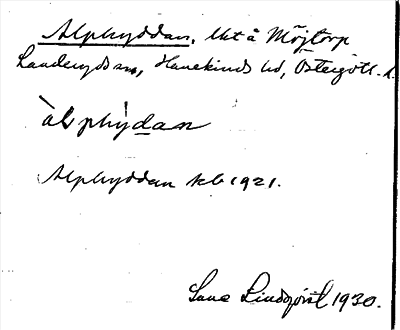 Alphyddan, lht å Möjtorp
Landeryds sn, Hanekinds hd, Östergötl. l.
àlphỳdan
Alphyddan kb 1921.
Sune Lindqvist 1930.